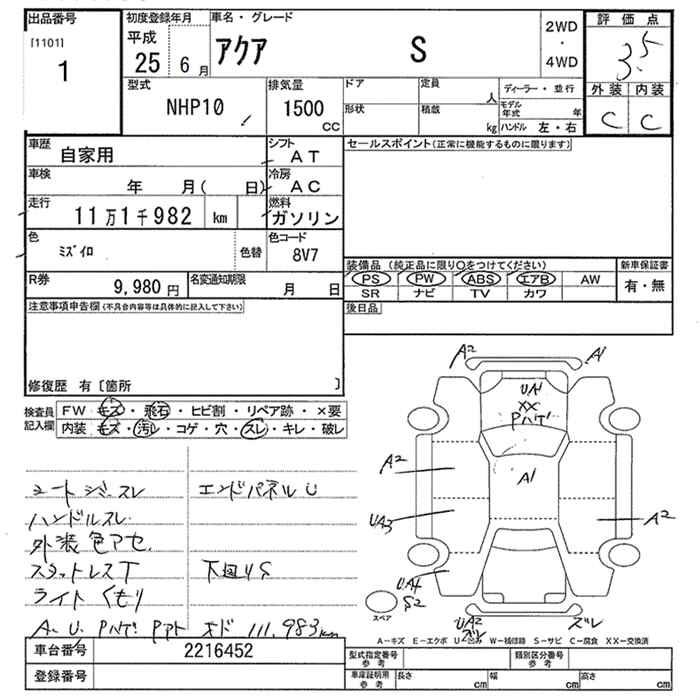 出品番号 初度登録年月 車名・グレード 評価点
[1101] 平成 2WD
1 25 6月 アクア S ・ 3.5
4WD
型式 排気量 ドア 定員 ディーラー・並行 外装 内装
NHP10 1500 人 モデル年式 年 C C
cc 形状 積載 kg ハンドル 左・右
車歴 自家用 シフト AT セールスポイント(正常に機能するものに限ります)
車検 年 月( 日) 冷房 AC
走行 11万1千982 km 燃料 ガソリン
色 ミズイロ 色替 色コード 8V7
装備品 (純正品に限り○をつけてください) 新車保証書
R券 9,980円 名変通知期限 月 日 PS PW ABS エアB AW 有・無
SR ナビ TV カワ
注意事項申告欄(不具合内容等は具体的に記入して下さい) 後日品
修復歴 有〔箇所 〕
検査員記入欄 FW キズ・飛石・ヒビ割・リペア跡・×要
内装 キズ・汚レ・コゲ・穴・スレ・キレ・破レ
A2 A1
UA1
XX
Pハゲ
A2 A1
UA3 A2
UA4
S2
スペア
UA2 ズレ
ズレ
シートシミ、スレ エンドパネルU
ハンドルスレ
外装色アセ
スタットレスT 下回りS
ライトくもり
A. U. Pハゲ. Pアト オド 111,983km
A－キズ E－エクボ U－凹み W－補修跡 S－サビ C－腐食 XX－交換済
車台番号 2216452 型式指定番号 参考 類別区分番号 参考
登録番号 車庫証明用 参考 長さ cm 幅 cm 高さ cm